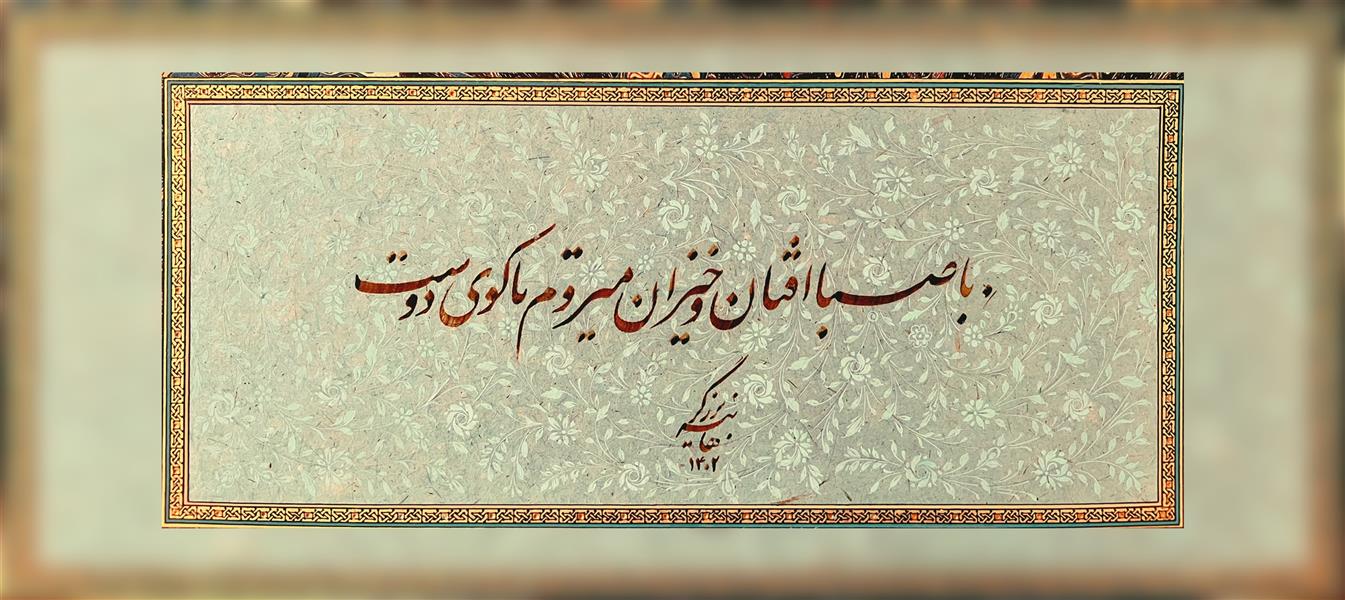 با صبا افتان و خیزان میروم تا کوی دوست
۱۴۰۲